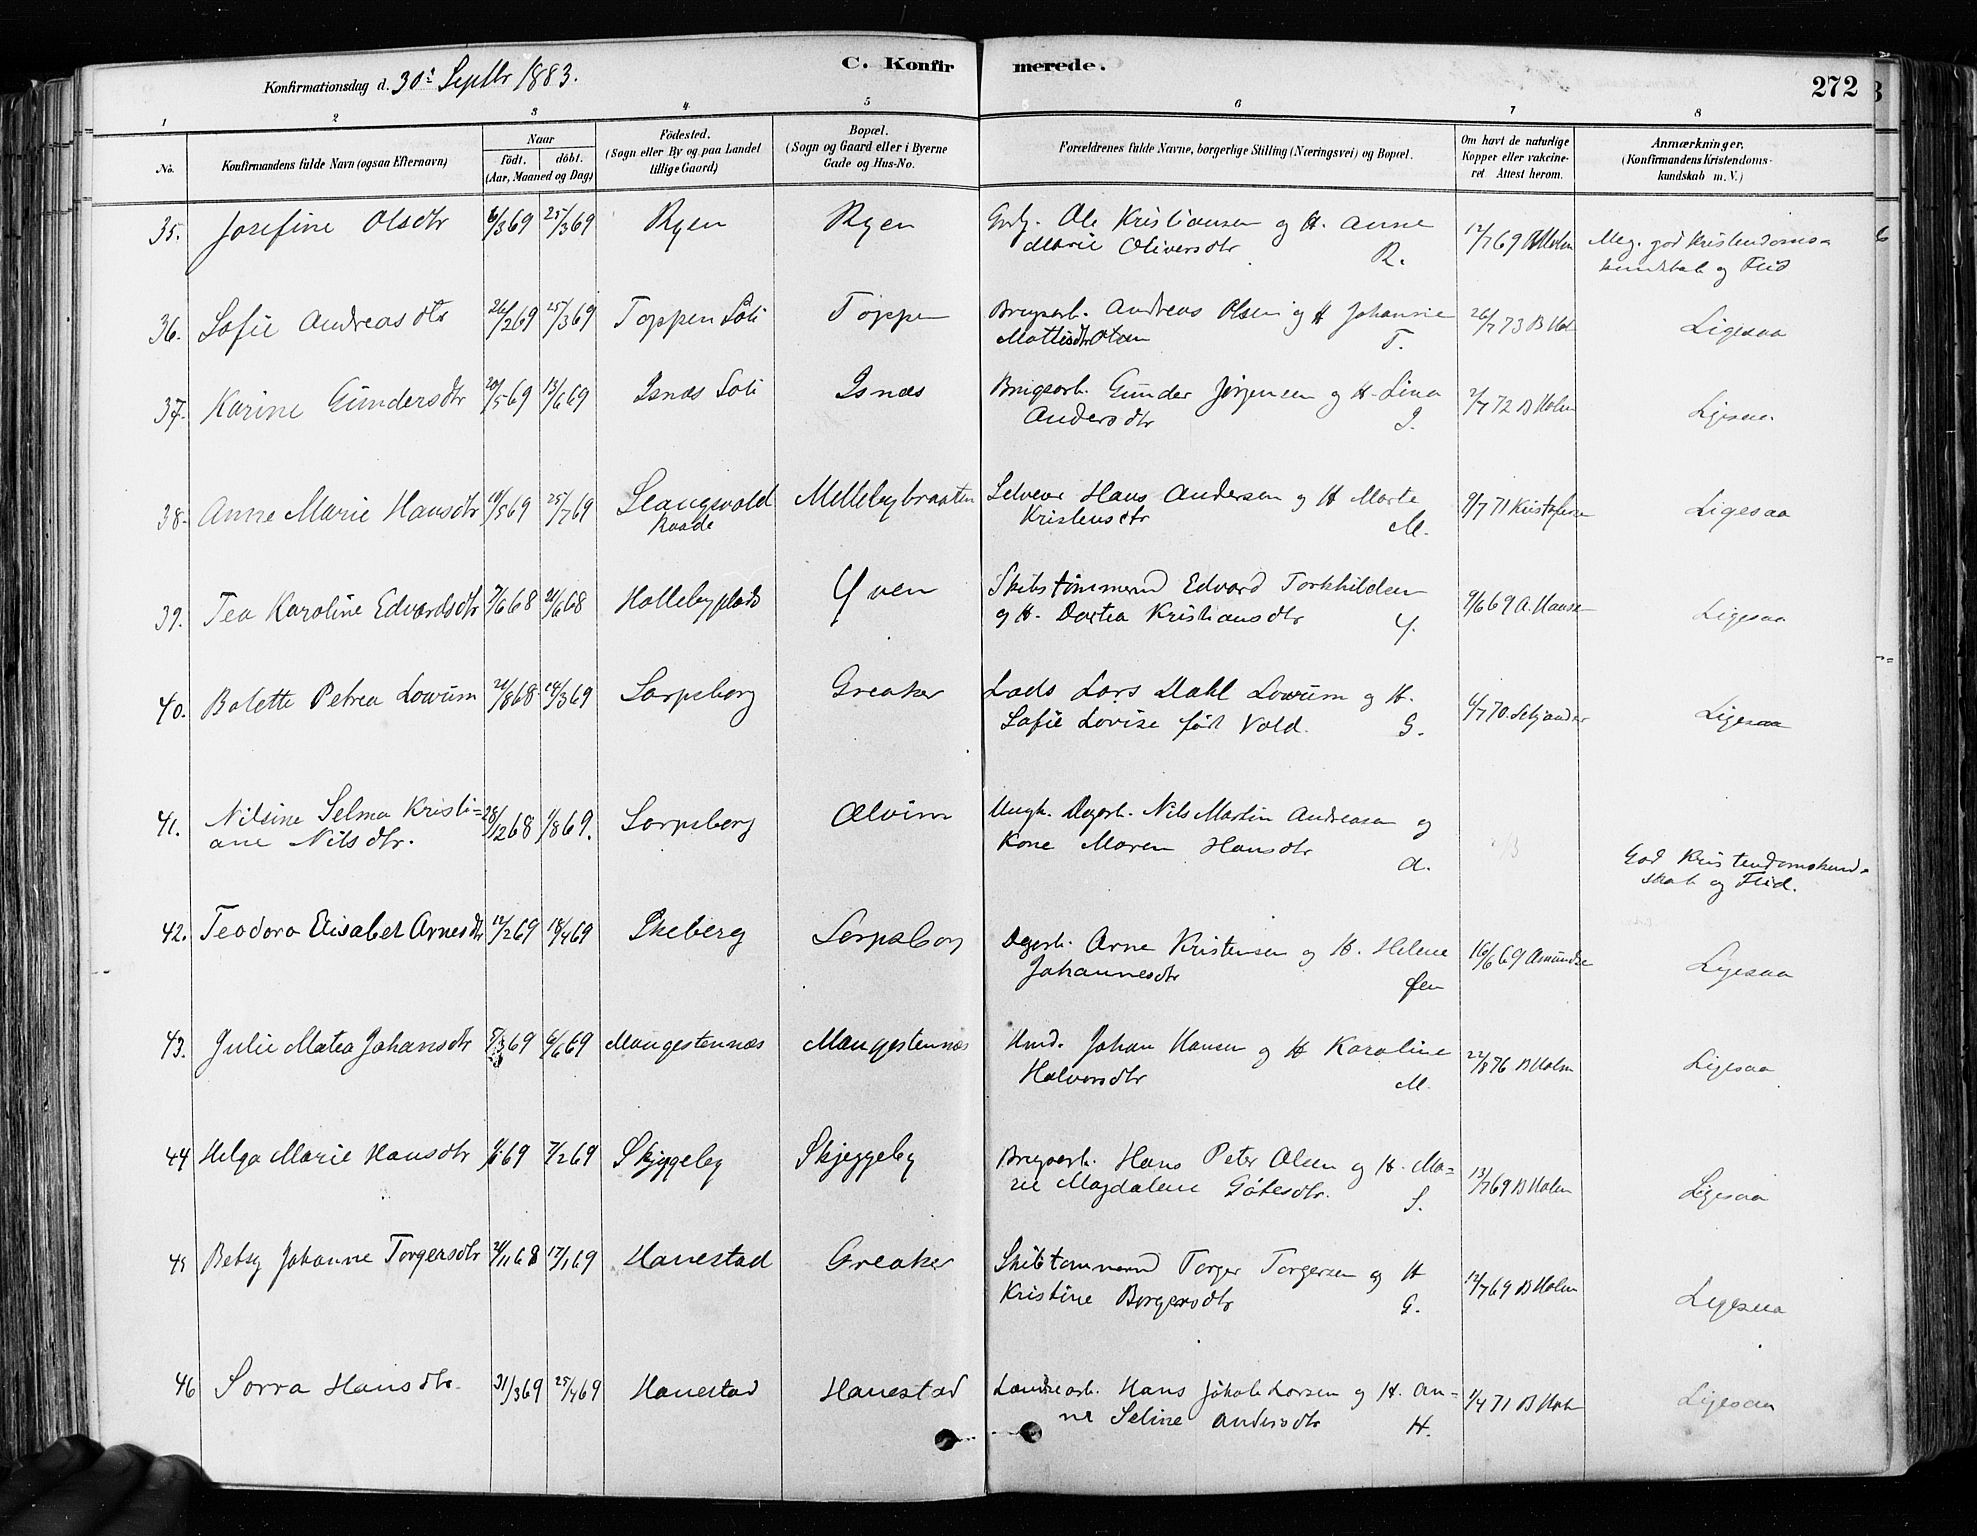 C. Konfirmerede.
272
Konfirmationsdag d. 30: Septbr 1883.
1 2 3 4 5 6 7 8
No.
Konfirmandens fulde Navn (ogsaa Efternavn)
Naar
født. døbt.
(Aar, Maaned og Dag)
Fødested.
(Sogn eller By og paa Landet
tillige Gaard)
Bopæl.
(Sogn og Gaard eller i Byerne
Gade og Hus-No.
Forældrenes fulde Navne, borgerlige Stilling (Næringsvei) og Bopæl.
Om havt de naturlige
Kopper eller vakcine-
ret Attest herom.
Anmærkninger.
(Konfirmandens Kristendoms-
kundskab m. V.)
35. Josefine Olsdtr 6/3 69 25/3 69 Ryen Ryen Ole Kristiansen og H. Anne 12/7 69 B Holm Meg. god Kristendoms-
Marie Oliversdtr R. kundskab og Flid
36. Sofie Andreasdtr 26/2 69 25/3 69 Toppen Soli Toppen Brugsarb. Andreas Olsen og H Johanne 26/7 73 B Hol Ligesaa
Mattisdtr Olsen T.
37. Karine Gundersdtr 20/5 69 13/6 69 Isnæs Soli Isnæs Brugsarb. Gunder Jørgensen og H. Lina 2/7 72 B Holm Ligesaa
Andersdtr I.
38. Anne Marie Hansdtr 18/5 69 25/7 69 Slangsvold Mellebybraaten Selveier Hans Andersen og H Marte 9/7 71 Kristofersen Ligesaa
Raade Kristensdtr M.
39. Tea Karoline Edvardsdtr 7/6 68 21/6 68 Hollebyplads Yven Skibstømmermd Edvard Torkhildsen 9/6 69 A. Hansen Ligesaa
og H. Dortea Kristiansdtr Y.
40. Bolette Petrea Lowum 21/8 68 14/3 69 Sarpsborg Greaker Lods Lars Dahl Lowum og H. 6/7 70. Ligesaa
Sofie Lovise født Vold. G.
41. Nilsine Selma Kristi= 28/12 68 1/8 69. Sarpsborg Alvim Ungk. Dagarb. Nils Martin Andreasen og
ane Nilsdtr. Kone Maren Hansdtr A. God Kristendomskund-
skab og Flid.
42. Teodora Elisabet Arnesdtr 12/2 69 18/4 69 Skeberg Sarpsborg Dagarb. Arne Kristensen og H. Helene 16/6 69 Amundse Ligesaa
Johannesdtr Øen
43. Julie Matea Johansdtr 7/3 69 6/6 69 Maugestennæs Maugestennæs Hmd. Johan Hansen og H Karoline 22/8 76 B Holm Ligesaa
Halvorsdtr M.
44 Helga Marie Hansdtr 1/1 69 7/2 69 Skjeggeby Skjeggeby Brugsarb. Hans Peter Olsen og H. Ma= 13/7 69 B Holm Ligesaa
rie Magdalene Götesdtr. S.
45 Betsy Johanne Torgersdtr 21/11 68 17/1 69 Hanestad Greaker Skibstømmermd Torger Torgersen og H 12/7 69 B Holm Ligesaa
Kristine Borgersdtr G.
46 Sorra Hansdtr. 31/3 69 25/4 69 Hanestad Hanestad Landarb. Hans Jakob Larsen og H. An= 1/4 71 B Hol Ligesaa
ne Seline Andersdtr H.